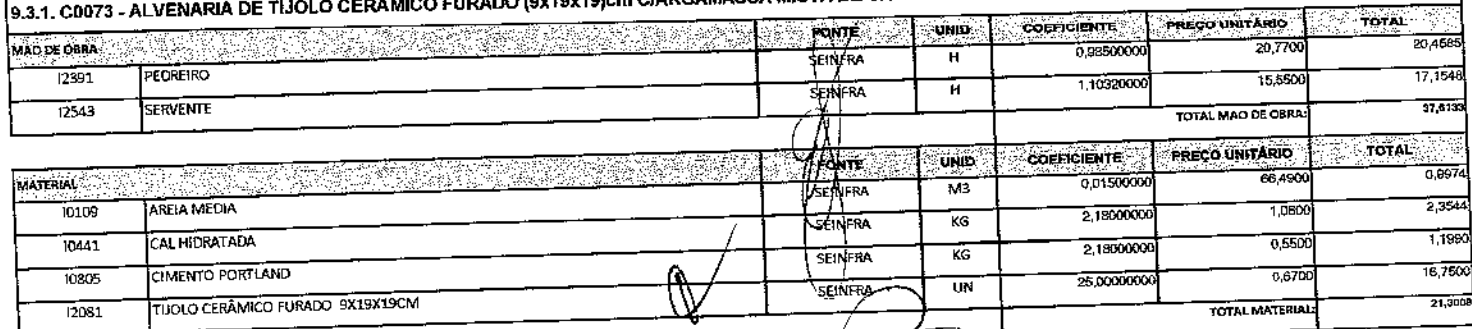 9.3.1. C0073 - ALVENARIA DE TIJOLO CERÂMICO FURADO (9x19x19)cm C/ARGAMASSA
MAO DE OBRA FONTE UNID COEFICIENTE PREÇO UNITÁRIO TOTAL
I2391 PEDREIRO SEINFRA H 0,98500000 20,7700 20,4585
I2543 SERVENTE SEINFRA H 1,10320000 15,5500 17,1548
TOTAL MAO DE OBRA: 37,6133
MATERIAL FONTE UNID COEFICIENTE PREÇO UNITÁRIO TOTAL
I0109 AREIA MEDIA SEINFRA M3 0,01500000 66,4900 0,9974
I0441 CAL HIDRATADA SEINFRA KG 2,18000000 1,0800 2,3544
I0805 CIMENTO PORTLAND SEINFRA KG 2,18000000 0,5500 1,1990
I2081 TIJOLO CERÂMICO FURADO 9X19X19CM SEINFRA UN 25,00000000 0,6700 16,7500
TOTAL MATERIAL: 21,3008